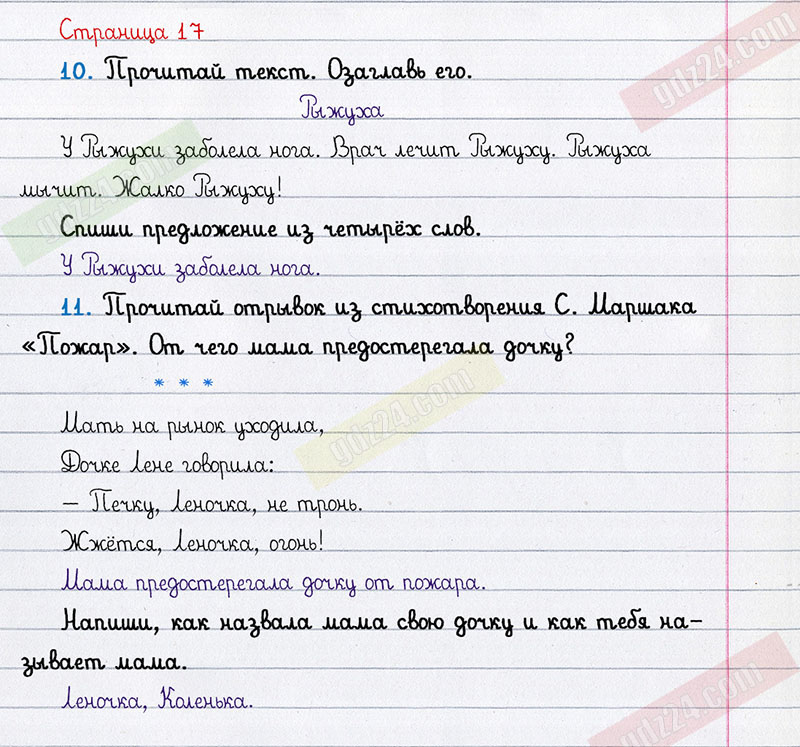 Страница 17
10. Прочитай текст. Озаглавь его.
Рыжуха
У Рыжухи заболела нога. Врач лечит Рыжуху. Рыжуха
мычит. Жалко Рыжуху!
Спиши предложение из четырёх слов.
У Рыжухи заболела нога.
11. Прочитай отрывок из стихотворения С. Маршака
«Пожар». От чего мама предостерегала дочку?
* * *
Мать на рынок уходила,
Дочке Лене говорила:
– Печку, Леночка, не тронь.
Жжётся, Леночка, огонь!
Мама предостерегала дочку от пожара.
Напиши, как назвала мама свою дочку и как тебя на-
зывает мама.
Леночка, Коленька.
gdz24.com
gdz24.com
gdz24.com
gdz24.com